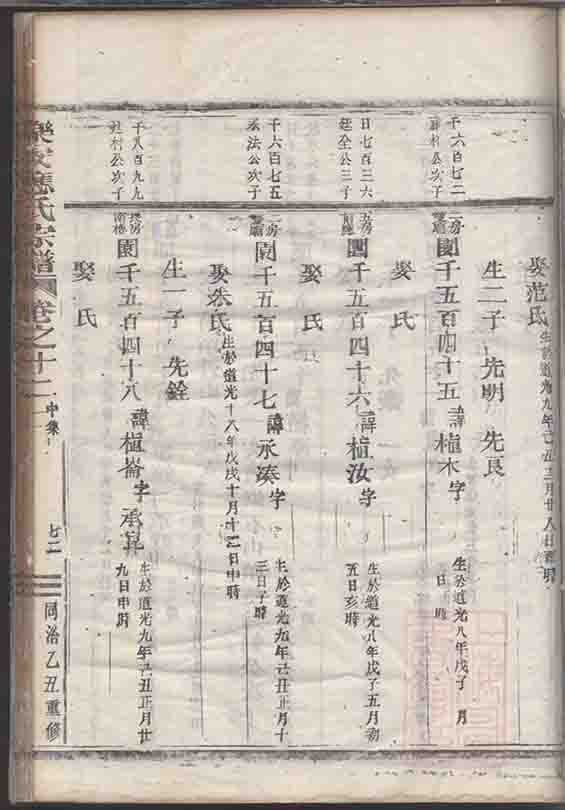 娶范氏 生於道光九年己丑三月廿八日 時
生二子 先明 先良
千六百七二 次子
二房 園千五百四十五 諱植木 字 生於道光八年戊子 月 日 時
娶 氏
日七百三六 廷全公三子
五房 園千五百四十六 諱植汝 字 生於道光八年戊子五月初五日亥時
娶 氏
千六百七五 承法公次子
二房 園千五百四十七 諱承湊 字 生於道光九年己丑正月十三日子時
娶朱氏 生於道光十八年戊戌十月十二日申時
生一子 先銓
千八百九九 公次子
房 園千五百四十八 諱植崙 字承 生於道光九年己丑正月廿九日申時
娶 氏
氏宗譜 卷之十二 中集 七二 同治乙丑重修